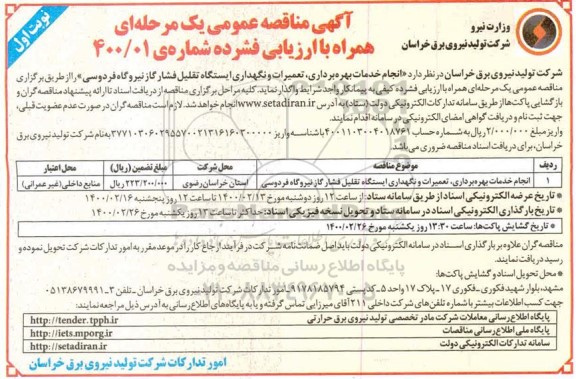 نوبت اول
آگهی مناقصه عمومی یک مرحله‌ای
همراه با ارزیابی فشرده شماره‌ی ۴۰۰/۰۱
وزارت نیرو
شرکت تولید نیروی برق خراسان
شرکت تولید نیروی برق خراسان در نظر دارد «انجام خدمات بهره‌برداری، تعمیرات و نگهداری ایستگاه تقلیل فشار گاز نیروگاه فردوسی» را از طریق برگزاری
مناقصه عمومی یک مرحله‌ای همراه با ارزیابی فشرده کیفی به پیمانکار واجد شرایط واگذار نماید. کلیه مراحل برگزاری مناقصه از دریافت اسناد تا ارائه پیشنهاد مناقصه‌گران و
بازگشایی پاکت‌ها از طریق سامانه تدارکات الکترونیکی دولت (ستاد) به آدرس www.setadiran.ir انجام خواهد شد. لازم است مناقصه‌گران در صورت عدم عضویت قبلی،
جهت ثبت نام و دریافت گواهی امضای الکترونیکی در سامانه اقدام نمایند.
واریز مبلغ ۲/۰۰۰/۰۰۰ ریال به شماره حساب ۴۰۰۱۱۰۳۰۰۴۰۱۸۷۶۱ با شناسه واریز به نام شرکت تولید نیروی برق
خراسان، برای دریافت اسناد مناقصه ضروری می‌باشد.
ردیف موضوع مناقصه محل شرکت مبلغ تضمین (ریال) محل اعتبار
۱ انجام خدمات بهره‌برداری، تعمیرات و نگهداری ایستگاه تقلیل فشار گاز نیروگاه فردوسی استان خراسان رضوی ۲۲۳/۲۰۰/۰۰۰ ریال منابع داخلی (غیر عمرانی)
* تاریخ عرضه الکترونیکی اسناد از طریق سامانه ستاد: از ساعت ۱۲ روز دوشنبه مورخ ۱۴۰۰/۰۲/۱۳ تا ساعت ۱۲ روز پنجشنبه ۱۴۰۰/۰۲/۱۶
* تاریخ بارگذاری الکترونیکی اسناد در سامانه ستاد و تحویل نسخه فیزیکی اسناد: حداکثر تا ساعت ۱۳ روز یکشنبه مورخ ۱۴۰۰/۰۲/۲۶
* تاریخ گشایش پاکت‌ها: ساعت ۱۳:۳۰ روز یکشنبه مورخ ۱۴۰۰/۰۲/۲۶
مناقصه‌گران علاوه بر بارگذاری اسناد در سامانه تدارکات الکترونیکی دولت باید اصل ضمانت‌نامه شرکت در فرآیند ارجاع کار را در موعد مقرر به امور تدارکات شرکت تحویل نموده و
رسید دریافت نمایند.
پایگاه اطلاع رسانی مناقصه و مزایده
* محل تحویل اسناد و گشایش پاکت‌ها:
مشهد، بلوار شهید فکوری - فکوری ۱۷ - پلاک ۱۷ واحد ۵ - کدپستی ۹۱۷۸۱۸۵۷۹۴ - امور تدارکات شرکت تولید نیروی برق خراسان - تلفن ۳ - ۰۵۱۳۸۶۷۹۹۹۱
جهت کسب اطلاعات بیشتر با شماره تلفن‌های شرکت داخلی ۲۱۱ آقای میرزایی تماس گرفته و یا به پایگاه‌های اطلاع رسانی به آدرس ذیل مراجعه نمایند:
پایگاه اطلاع رسانی معاملات شرکت مادر تخصصی تولید نیروی برق حرارتی http://tender.tpph.ir
پایگاه ملی اطلاع رسانی مناقصات http://iets.mporg.ir
سامانه تدارکات الکترونیکی دولت http://setadiran.ir
امور تدارکات شرکت تولید نیروی برق خراسان